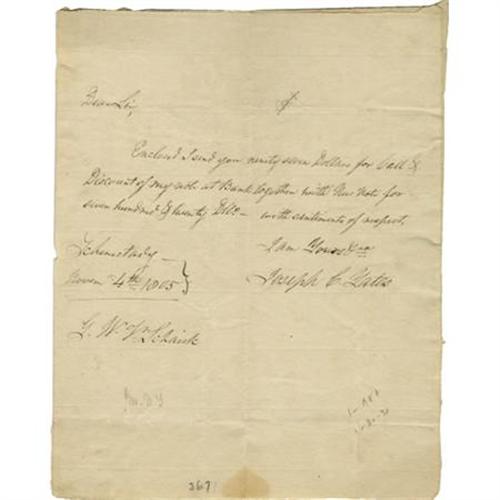 Dear Sir,
Enclosed I send you ninety seven Dollars for Call &
Discount of my note at Bank together with New Note for
seven hundred & twenty Dlls — with sentiments of respect,
I am Yours &ca
Schenectady
Novem 4th 1805
Joseph C. Yates
G. W. Vn Schaick
267